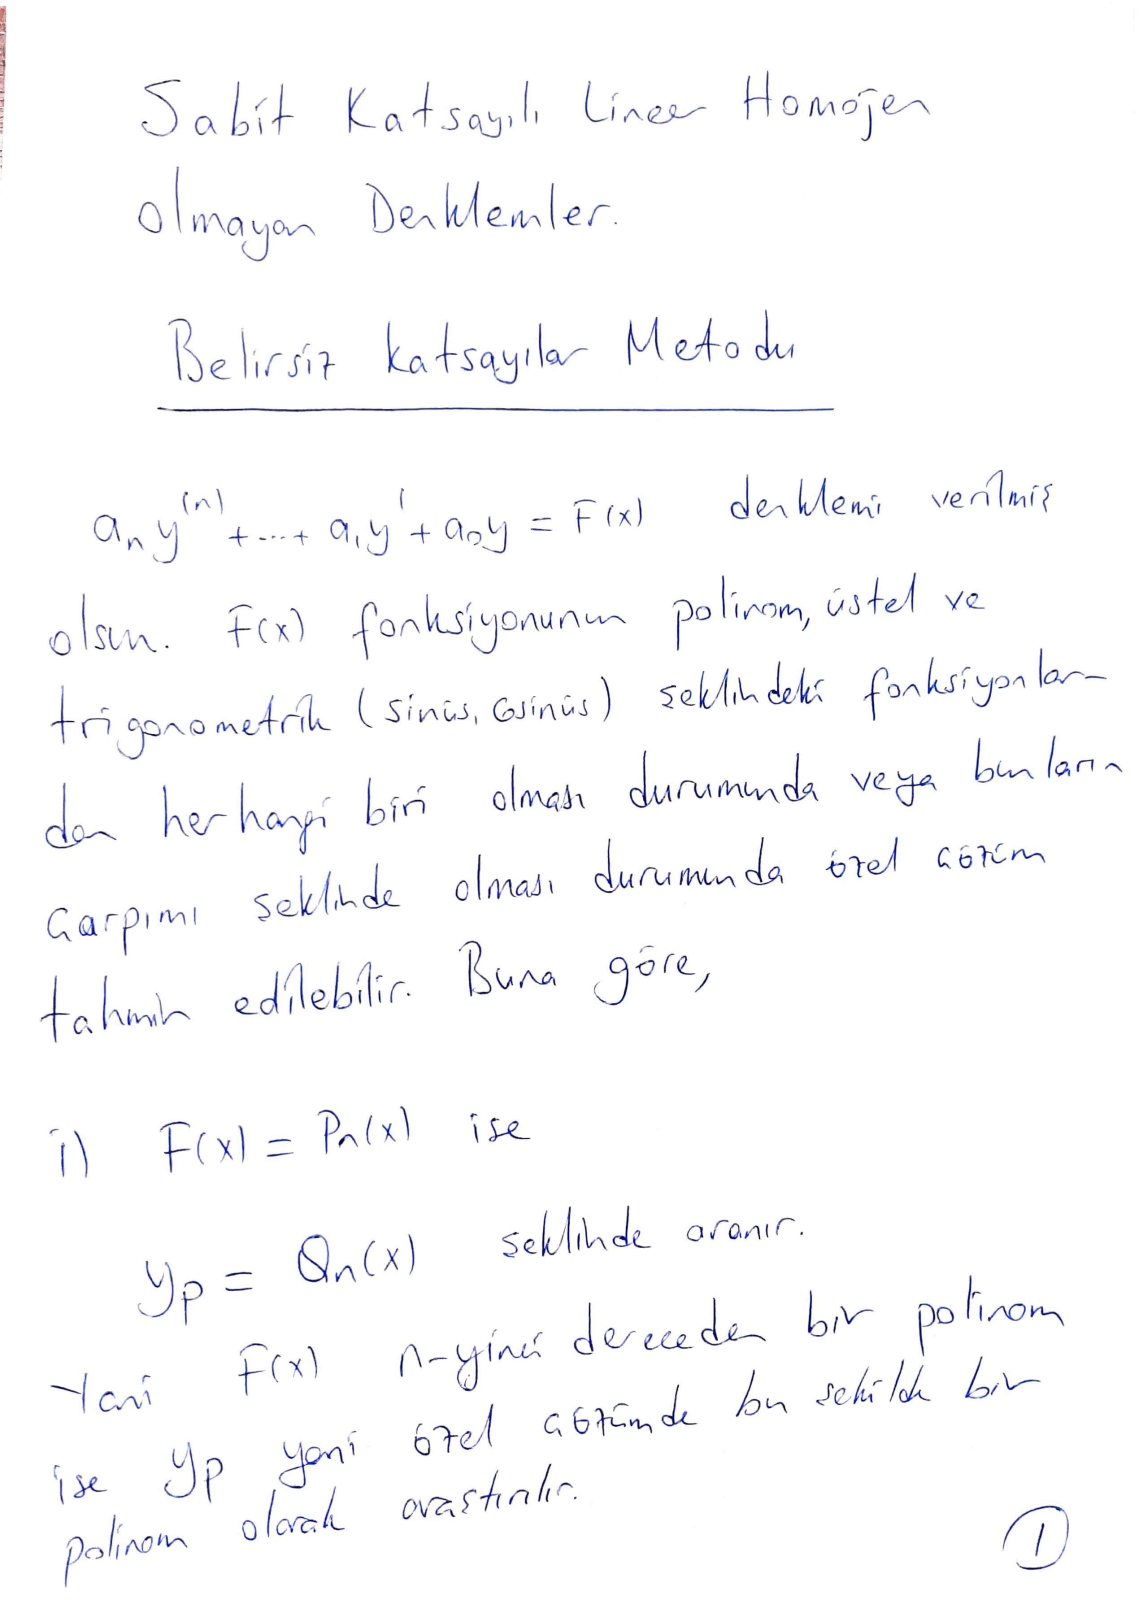 Sabit Katsayılı Lineer Homojen
olmayan Denklemler.
Belirsiz Katsayılar Metodu
aₙy⁽ⁿ⁾ + ... + a₁y' + a₀y = F(x) denklemi verilmiş
olsun. F(x) fonksiyonunun polinom, üstel ve
trigonometrik (sinüs, cosinüs) şeklindeki fonksiyonlar-
dan herhangi biri olması durumunda veya bunların
çarpımı şeklinde olması durumunda özel çözüm
tahmin edilebilir. Buna göre,
i) F(x) = Pₙ(x) ise
yₚ = Qₙ(x) şeklinde aranır.
Yani F(x) n-yinci dereceden bir polinom
ise yₚ yani özel çözümde bu şekilde bir
polinom olarak araştırılır.
1